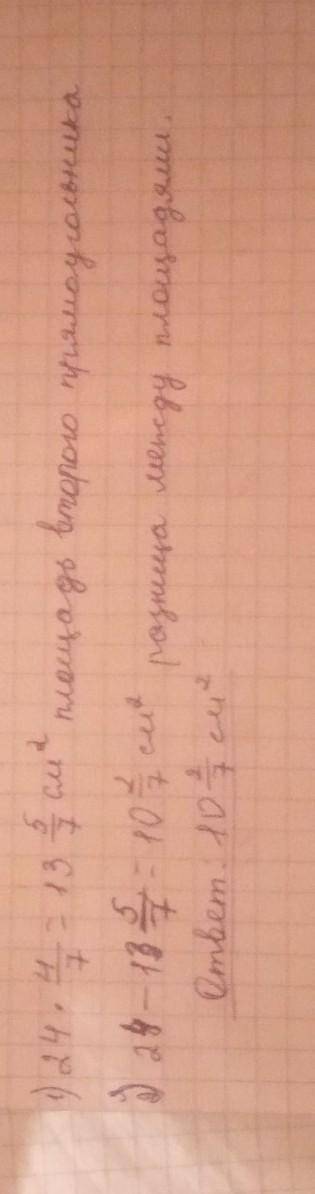 1) 24 · 4/7 = 13 5/7 см² площадь второго прямоугольника
2) 24 - 13 5/7 = 10 2/7 см² разница между площадями.
Ответ: 10 2/7 см²